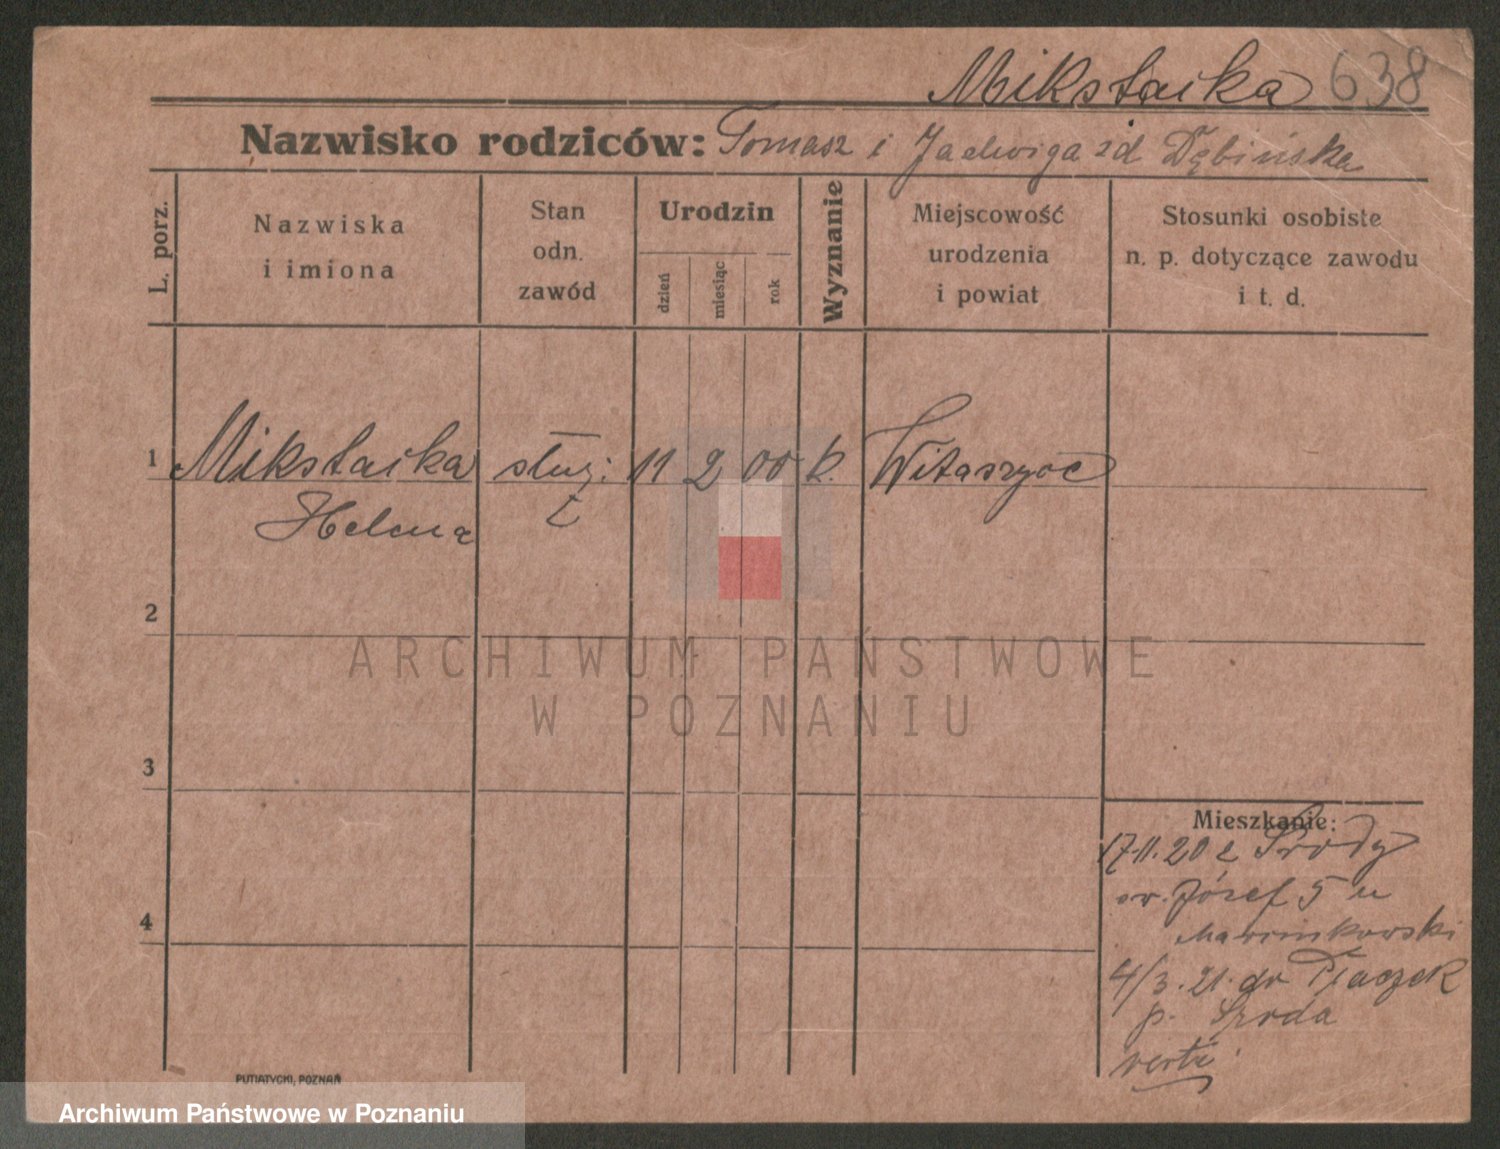 Mikstaika 638
Nazwisko rodziców: Tomasz i Jadwiga zd Dębińska
L. porz.
Nazwiska
i imiona
Stan
odn.
zawód
Urodzin
dzień
miesiąc
rok
Wyznanie
Miejscowość
urodzenia
i powiat
Stosunki osobiste
n. p. dotyczące zawodu
i t. d.
1 Mikstaika służ: 11 2 00 k. Witaszyce
Helena
2
3
4
Mieszkanie:
17.11.20 z Środy
św. Józef 5 u
Marcinkowski
4/3.21. do Płaczek
p. Środa
verte
PUTIATYCKI, POZNAŃ
ARCHIWUM PAŃSTWOWE
W POZNANIU
Archiwum Państwowe w Poznaniu